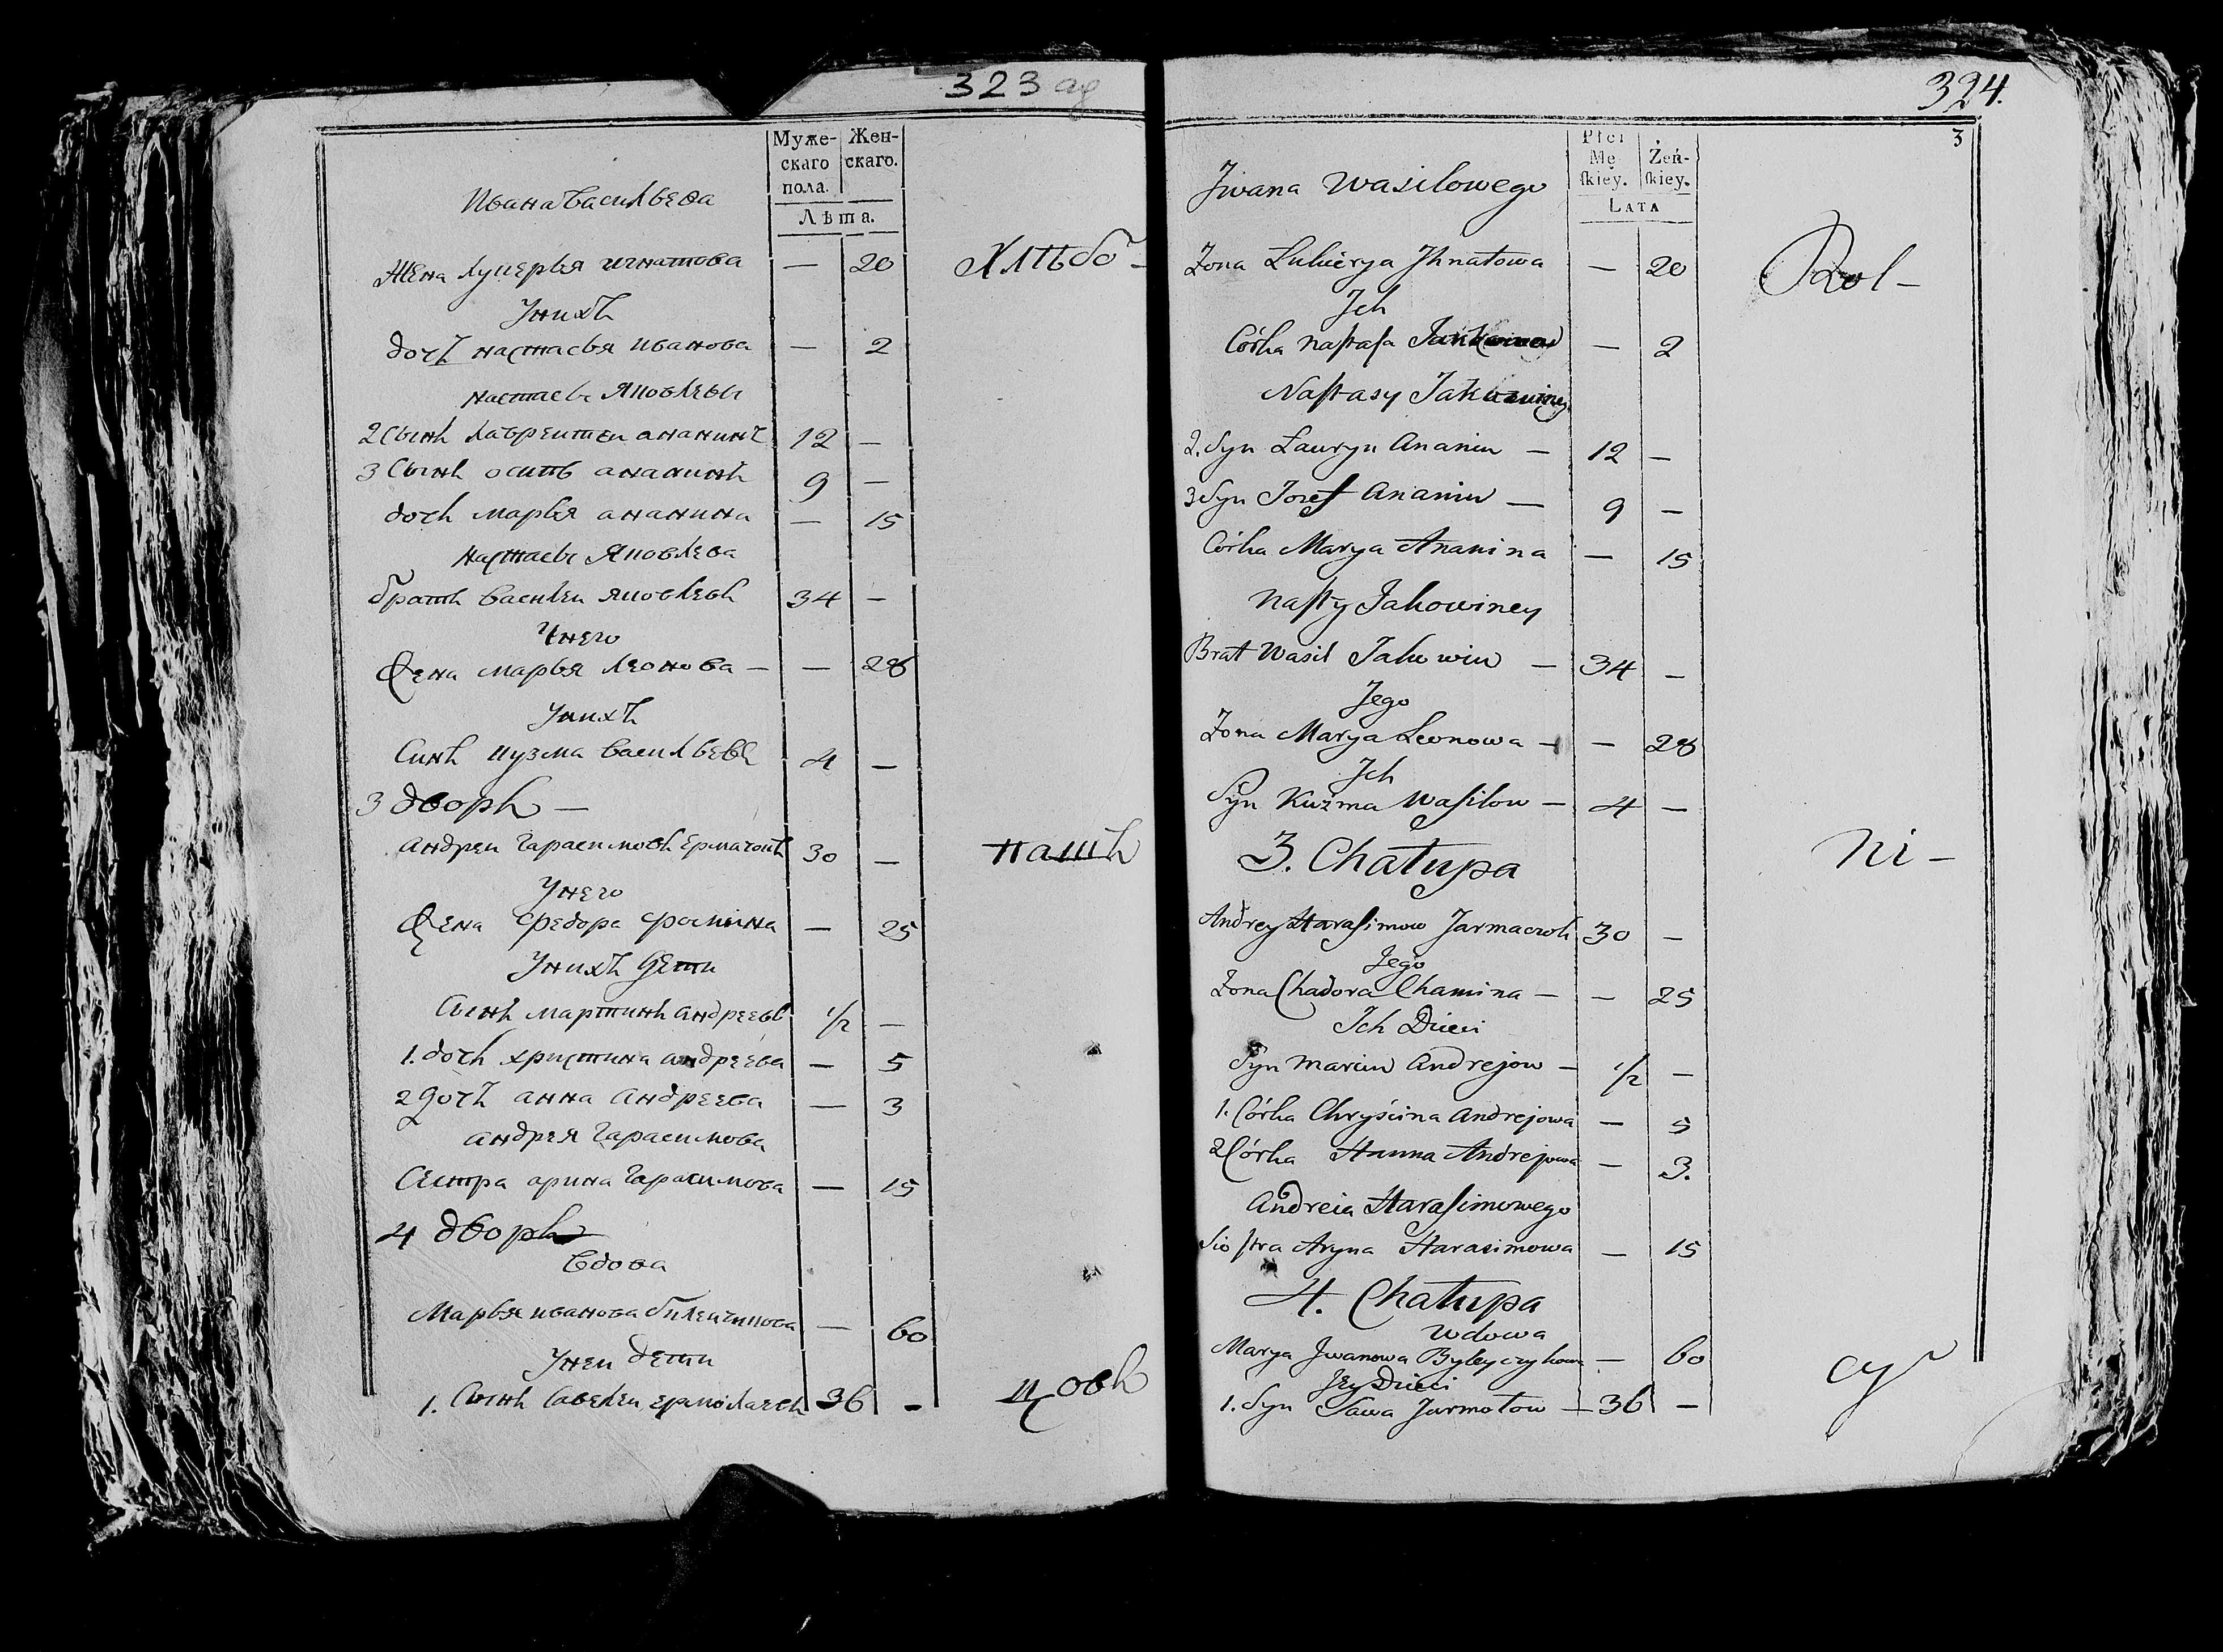 323 об
Муже-
скаго
пола.
Жен-
скаго.
Лѣта.
Ивана Васильева
Жена Лукерья Игнатова — 20
Хлѣбо-
У нихъ
дочъ Настасья Иванова — 2
Настасьи Яковлевы
2 Сынъ Лаврентеи Ананинъ 12 —
3 Сынъ Осипъ Ананинъ 9 —
дочь Марья Ананина — 15
Настасьи Яковлева
братъ Василеи Яковлевъ 34 —
У него
Жена Марья Леонова — — 28
У нихъ
Синъ Кузма Васильевъ 4 —
3 дворъ —
Андреи Гарасимовъ Ермачокъ 30 —
пашъ
У него
Жена Федора Фомина — 25
У нихъ дети
Сынъ Мартинъ Андреевъ 1/2 —
1. дочь Христина Андреева — 5
2 дочъ Анна Андреева — 3
Андрея Гарасимова
Сестра Арина Гарасимова — 15
4 дворъ
Вдова
Марья Иванова — 60
У неи дети
1. Сынъ Савелеи Ермолаевъ 36 —
цовъ
324.
3
Płci
Mę
skiey.
Żeń-
skiey.
LATA
Jwana Wasilowego
Żona Łukierya Jhnatowa — 20
Rol-
Jch
Córka Nastasa — 2
Nastasy
2. Syn Ławryn Ananin — 12 —
3 Syn Jozef Ananin — 9 —
Córka Marya Ananina — 15
Nasty Jakowiney
Brat Wasil Jakowin — 34 —
Jego
Żona Marya Leonowa — — 28
Jch
Syn Kuźma Wasilow — 4 —
3. Chałupa
ni-
Andrey Harasimow Jarmaczok 30 —
Jego
Żona Chadora Chamina — — 25
Jch Dzieci
Syn Marcin Andrejow — 1/2 —
1. Córka Chryścina Andrejowa — 5
2 Córka Hanna Andrejowa — 3.
Andreia Harasimowego
Siostra Aryna Harasimowa — 15
4. Chałupa
Wdowa
Marya Jwanowa Byleyczykowa — 60
Jey Dzieci
cy
1. Syn Sawa Jarmołow — 36 —